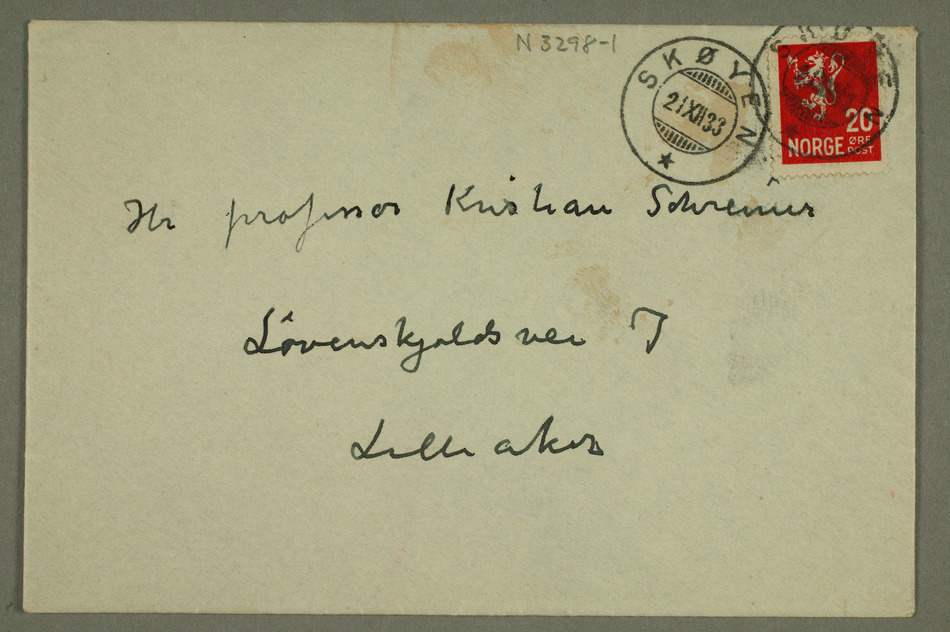 N 3298-1
SKØYEN
21XII33
20
NORGE ØRE POST
Hr professor Kristian Schreiner
Lövenskjolds vei 7
Lilleaker